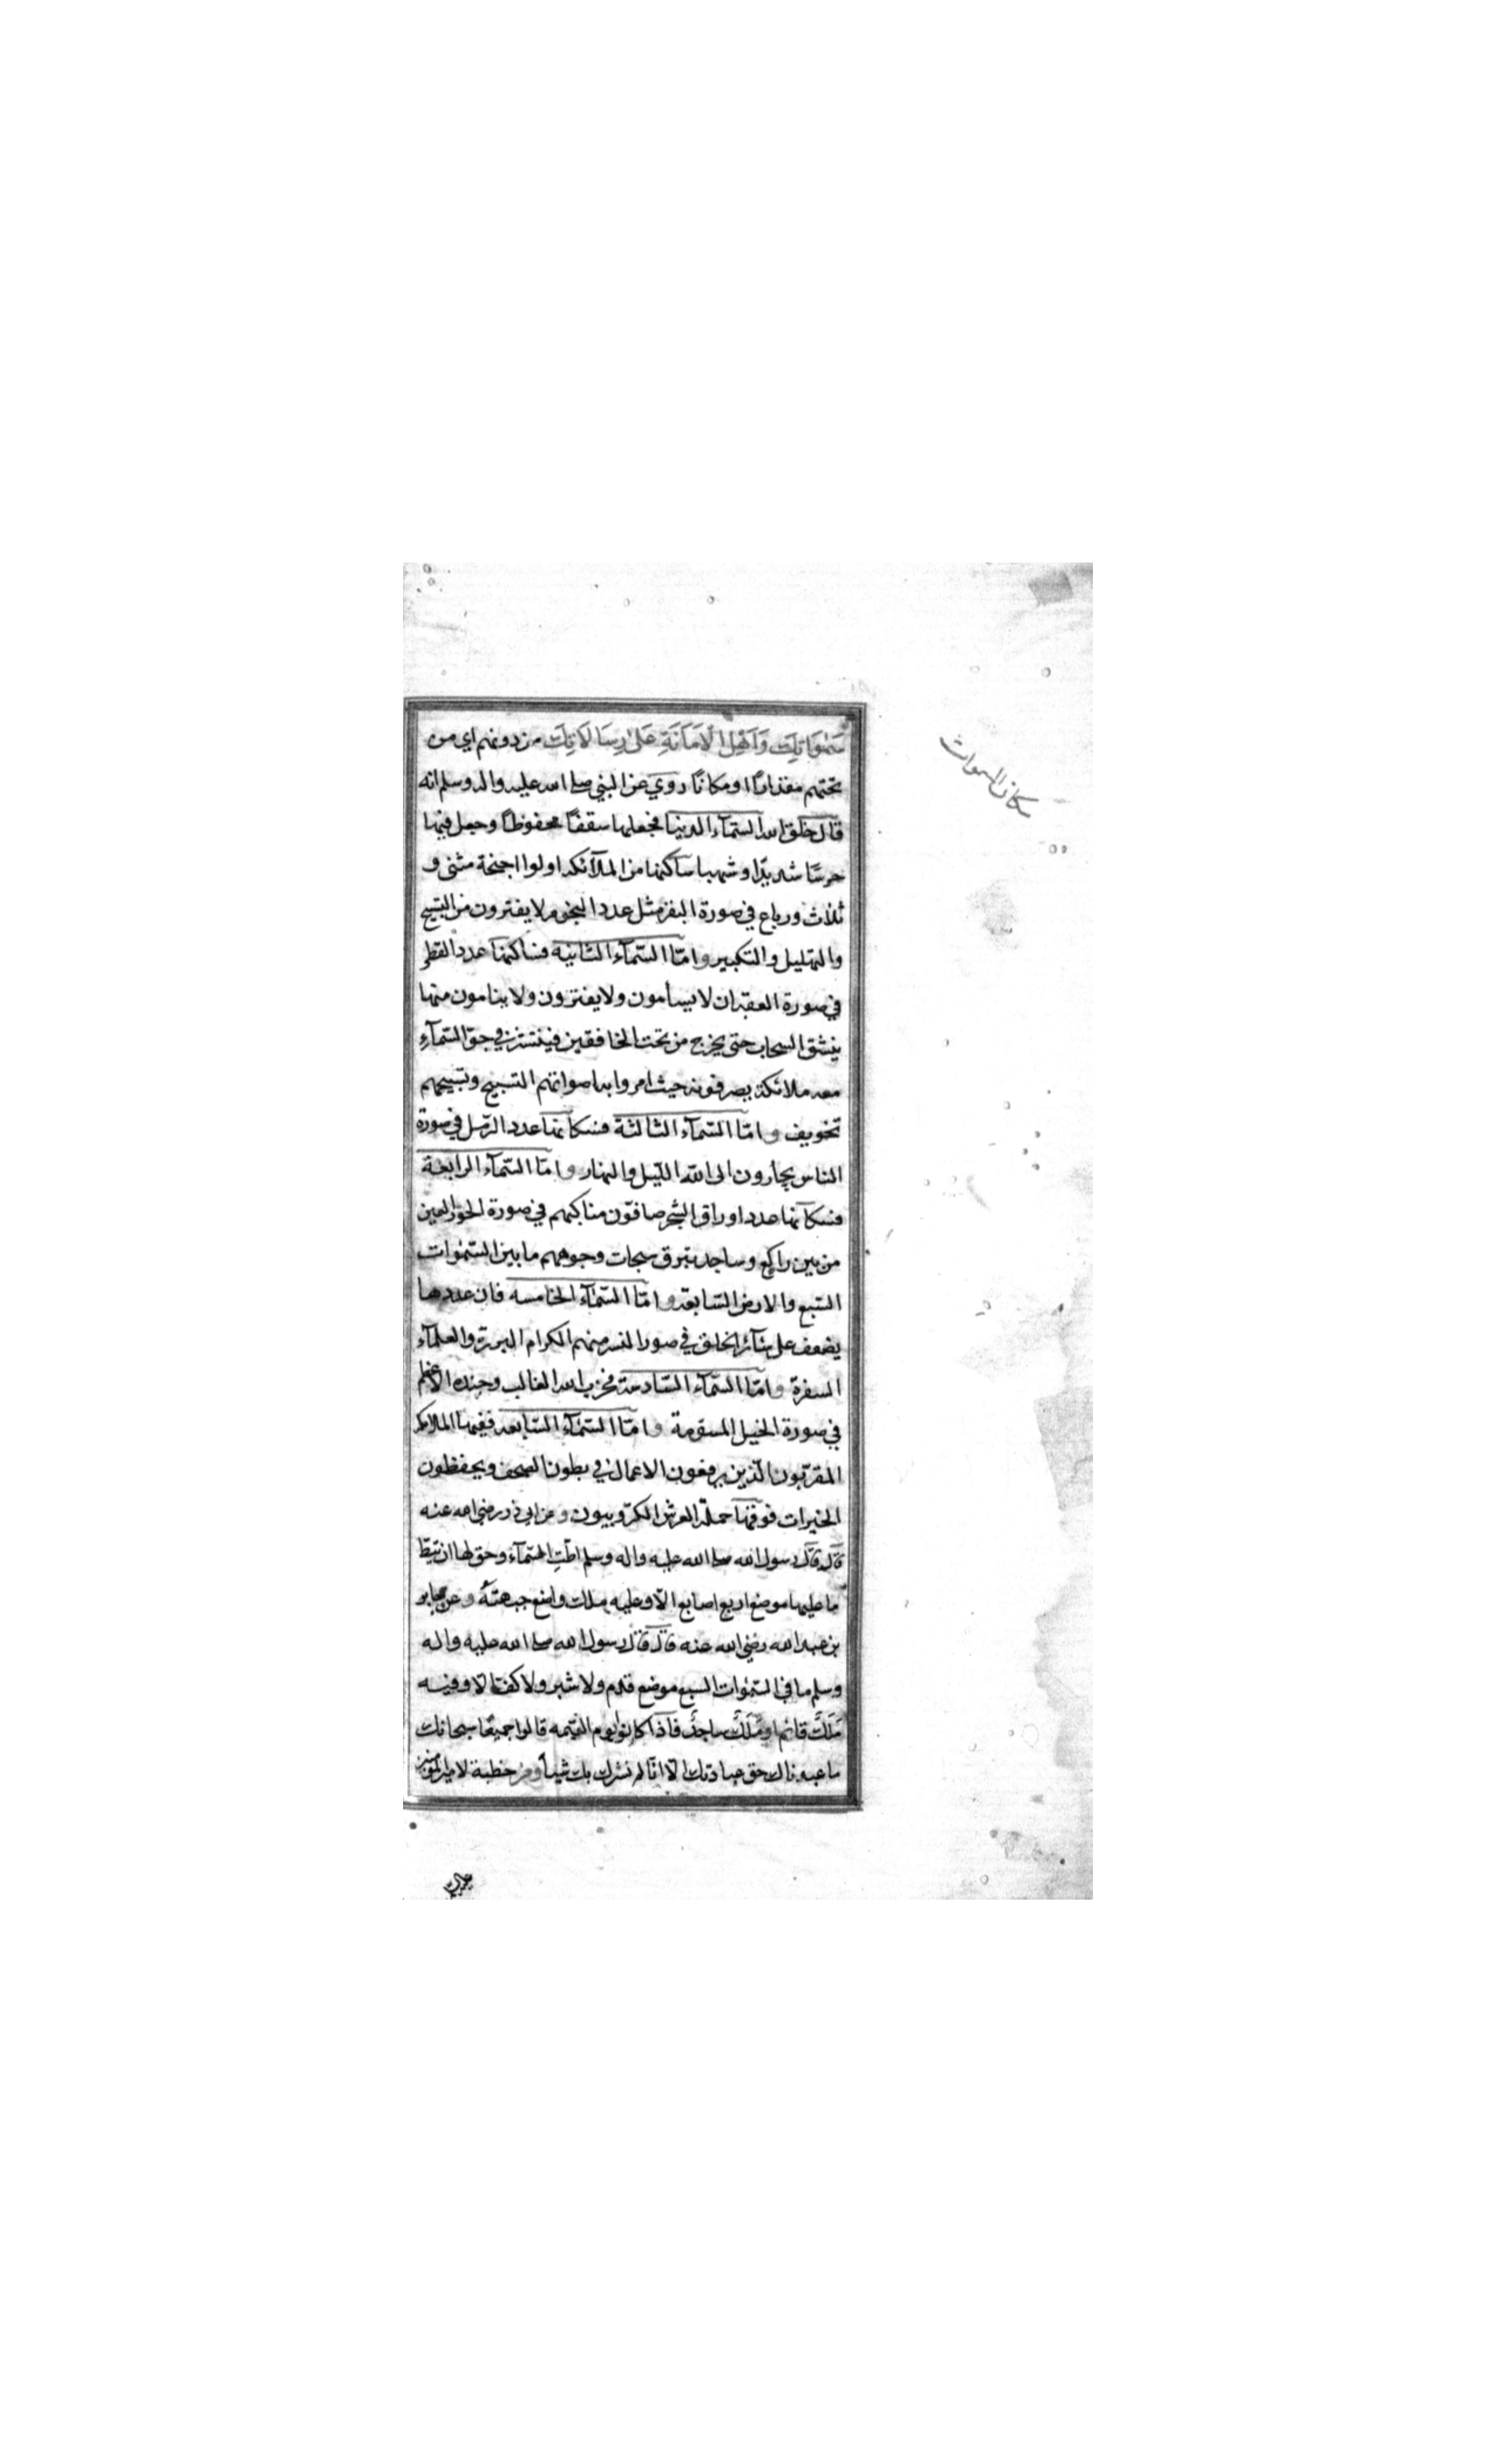 سَمٰوَاتِكَ وَاَهْلِ الْاَمَانَةِ عَلٰى رِسَالَاتِكَ من دونهم اي من
تحتهم مقدارًا او مكانًا روي عن النبي صلى الله عليه واله وسلم انه
قال خلق الله السّمآء الدنيا فجعلها سقفًا محفوظًا وجعل فيها
حرسًا شديدًا وشهبا ساكنها من الملآئكه اولوا اجنحة مثنى و
ثلاث ورباع في صورة البقر مثل عدد النجوم لا يفترون من التسبيح
والتهليل والتكبير وامّا السّمآء الثانيه فساكنها عدد القطر
في صورة العقبان لا يسأمون ولا يفترون ولا ينامون منها
ينشق السحاب حتى يخرج من تحت الخافقين فينتشر في جوّ السّمآء
معه ملائكة يصرفونه حيث امروا به اصواتهم التسبيح وتسبيحهم
تخويف وامّا السّمآء الثالثة فسكانها عدد الرّمل في صورة
الناس يجأرون الى الله الليل والنهار وامّا السّمآء الرابعة
فسكانها عدد اوراق الشجر صافّون مناكبهم في صورة الحور العين
من بين راكع وساجد تبرق سبحات وجوههم ما بين السّمٰوات
السّبع والارض السّابعة وامّا السّمآء الخامسه فان عددها
يضعف على سآئر الخلق في صور النسر منهم الكرام البررة والعلمآء
السفرة وامّا السّمآء السّادسة فحزب الله الغالب وجنده الاعظم
في صورة الخيل المسوّمة وامّا السّمآء السّابعه ففيها الملائكه
المقرّبون الّذين يرفعون الاعمال في بطون الصحف ويحفظون
الخيرات فوقها حملة العرش الكرّوبيون وعن ابي ذر رضي الله عنه
قال قال رسول الله صلى الله عليه واله وسلم اطّت السّمآء وحق لها ان تئطّ
ما عليها موضع اربع اصابع الّا وعليه ملك واضع جبهته وعن جابر
بن عبد الله رضي الله عنه قال قال رسول الله صلى الله عليه واله
وسلم ما في السّمٰوات السبع موضع قدم ولا شبر ولا كف الّا وفيه
مَلَكٌ قائم او مَلَكٌ ساجد فاذا كان يوم القيمه قالوا جميعًا سبحانك
ما عبدناك حق عبادتك الّا انّا لم نشرك بك شيأ ومن خطبة لامير المؤمنين
سكان السموات